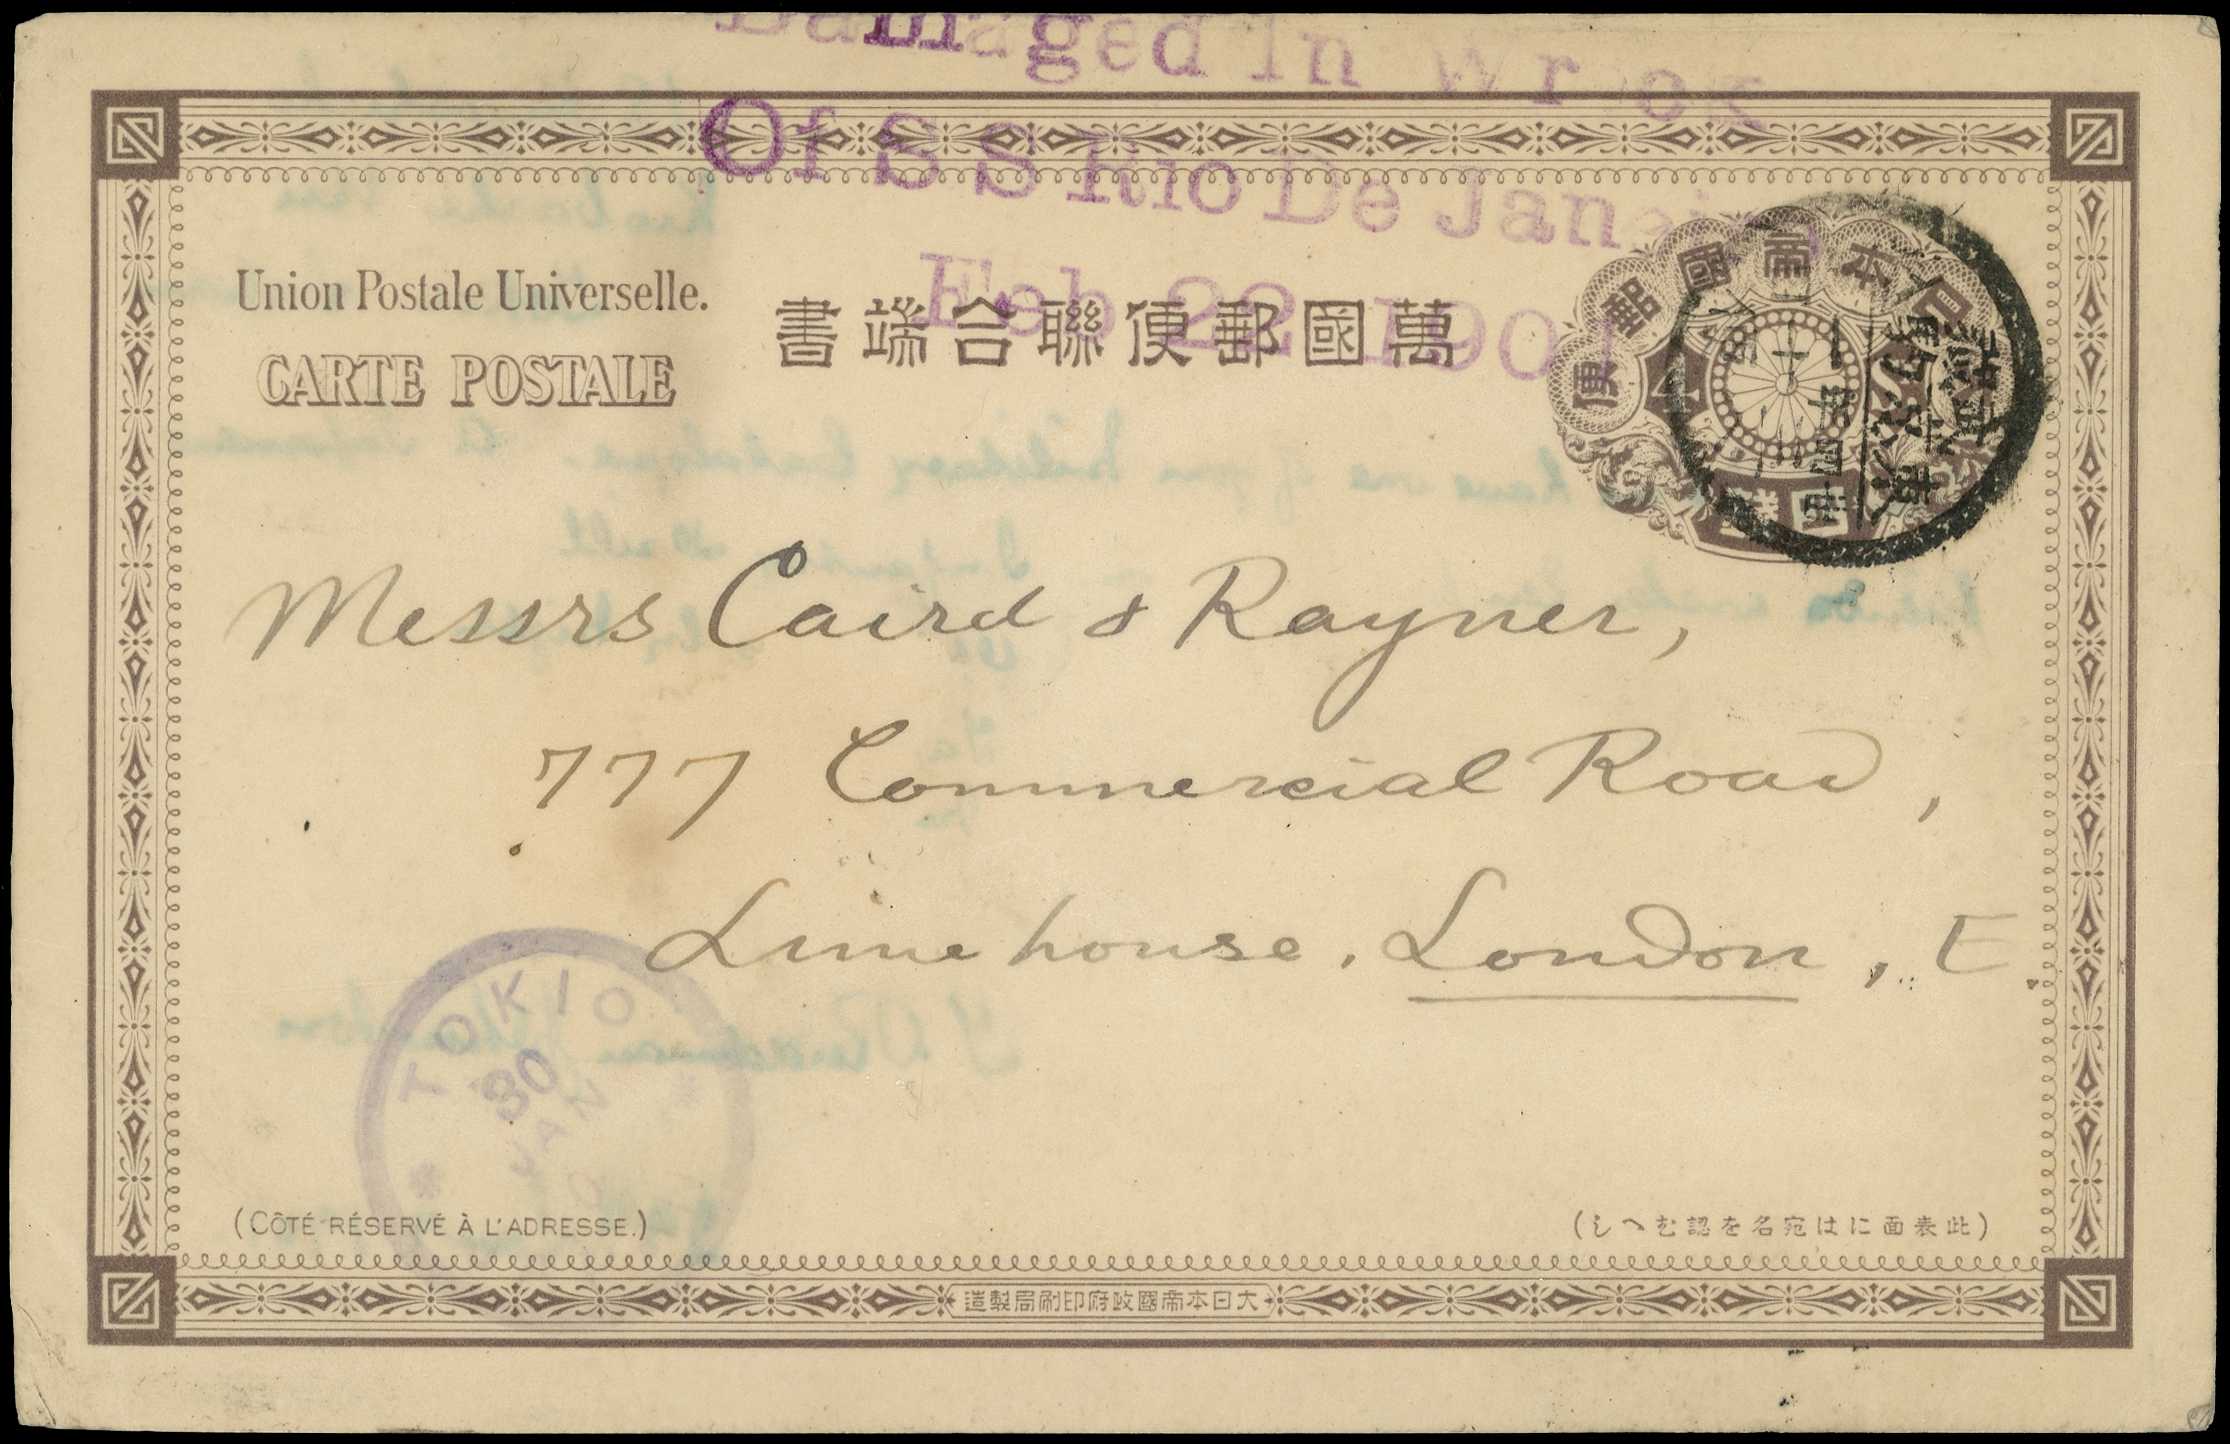 Damaged In Wreck
Of S S Rio De Janeiro
Feb 22 1901
Union Postale Universelle.
CARTE POSTALE
書端合聯便郵國萬
便郵國帝本日
4 Sn
錢四
Messrs Caird & Rayner,
777 Commercial Road,
Limehouse, London, E.
TOKIO
30
JAN
(CÔTÉ RÉSERVÉ À L'ADRESSE.)
(しへむ認を名宛はに面表此)
造製局刷印府政國帝本日大